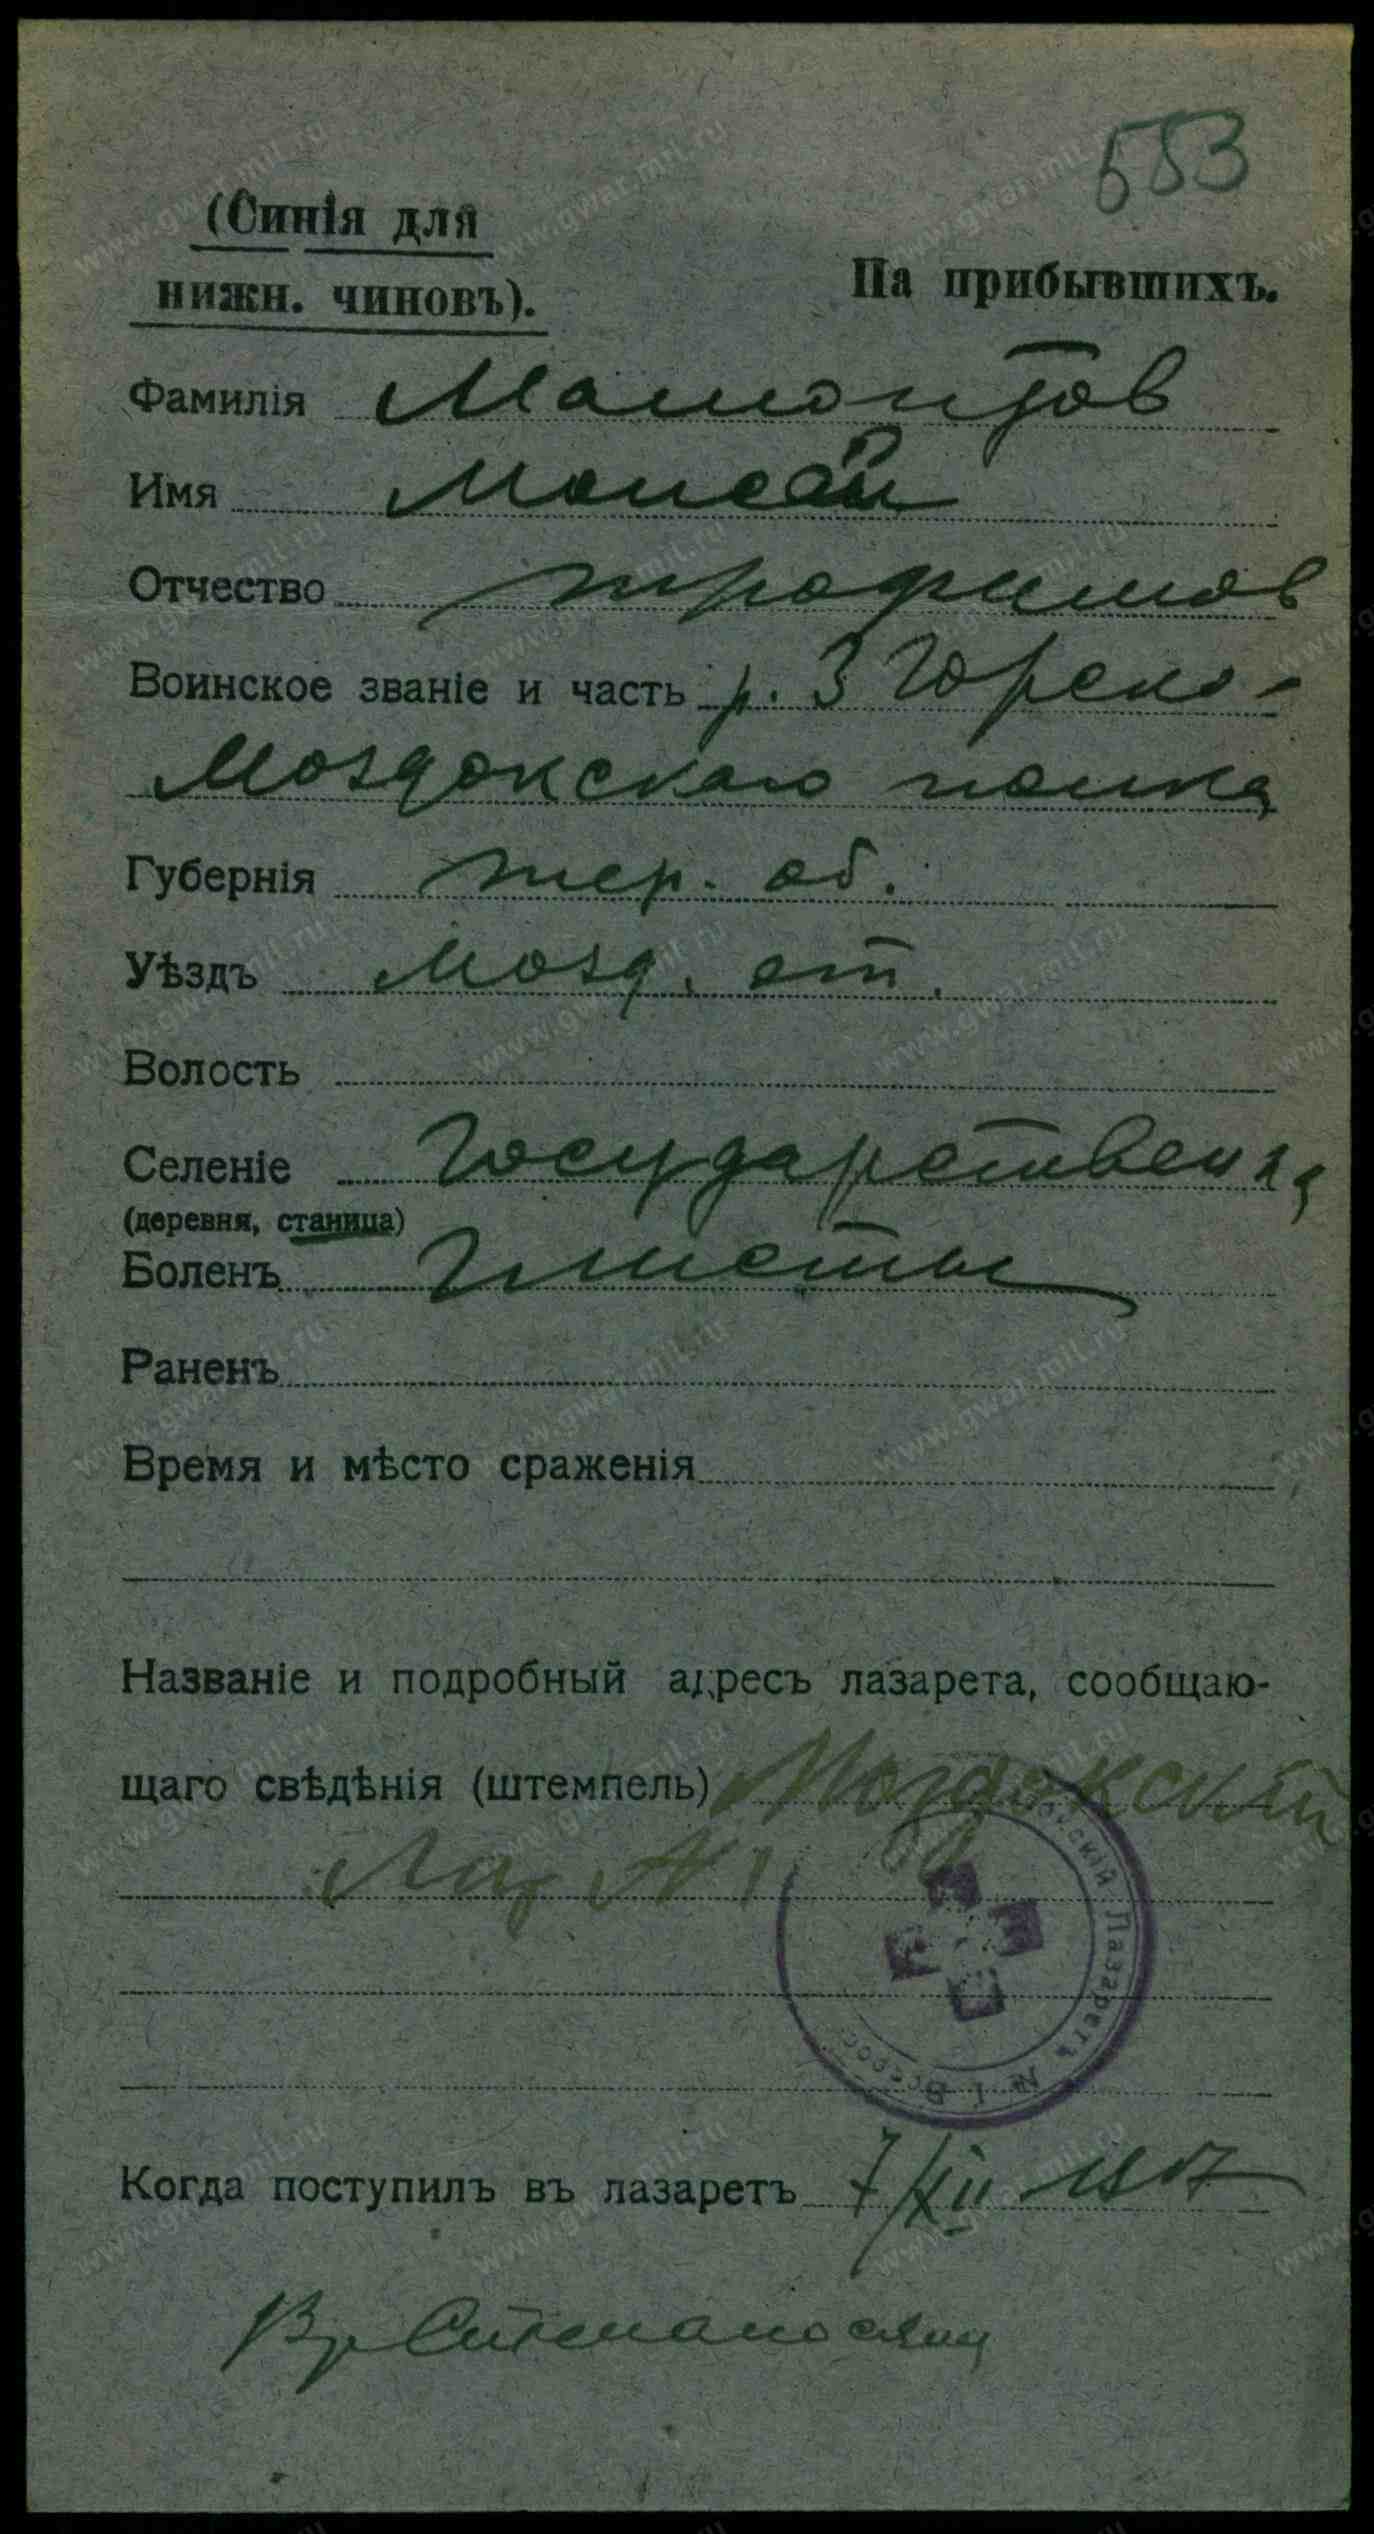 553
(Синія для
нижн. чиновъ).
На прибывшихъ.
Фамилія Мамонтов
Имя Моисей
Отчество Трофимов
Воинское званіе и часть р. 3 Горско-
Моздокскаго полка
Губернія Тер. об.
Уѣздъ Мозд. от.
Волость
Селеніе Государственная
(деревня, станица)
Боленъ Глисты
Раненъ
Время и мѣсто сраженія
Названіе и подробный адресъ лазарета, сообщаю-
щаго свѣдѣнія (штемпель) Моздокский
Лаз № 1
Лазаретъ № 1
Когда поступилъ въ лазаретъ 7/XII 1917
Вр